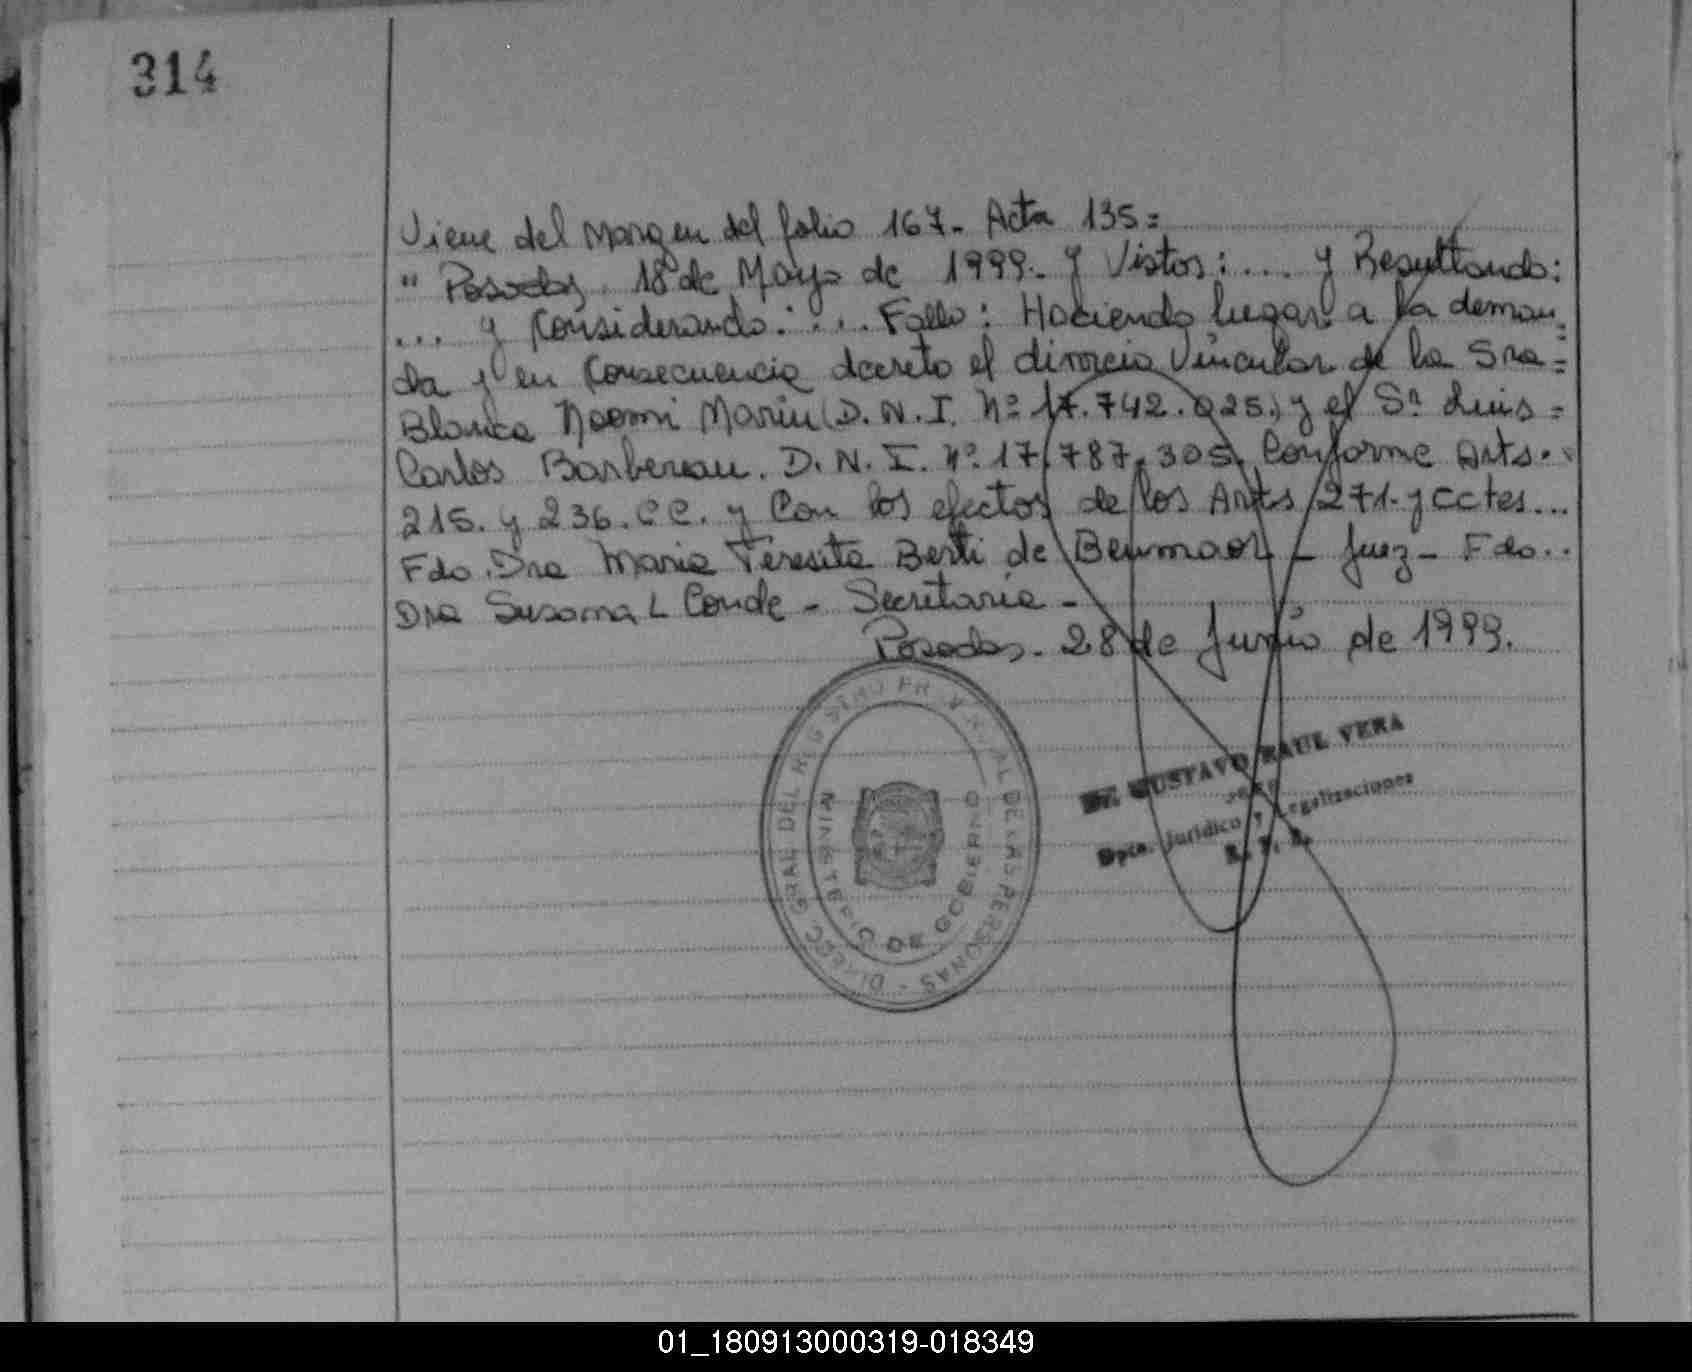 314
Viene del Margen del folio 167- Acta 135=
" Posadas, 18 de Mayo de 1999.- y Vistos: ... y Resultando:
... y Considerando: ... Fallo: Haciendo lugar a la deman-
da y en Consecuencia decreto el divorcio Vincular de la Sra =
Blanca Noemi Mariu (D.N.I. Nº 17.742.025.) y el Sr Luis =
Carlos Barberau. D.N.I. Nº 17.787.305. Conforme Arts.
215. y 236. CC. y Con los efectos de los Arts 271. y cctes...
Fdo. Dra Maria Teresita Berti de Beumaor - Juez - Fdo..
Dra Susana L Conde - Secretaria -
Posadas. 28 de Junio de 1999.
DIRECC GRAL DEL REGISTRO PROVINCIAL DE LAS PERSONAS -
MINISTERIO DE GOBIERNO
Dr. GUSTAVO RAUL VERA
JEFE
Dpto. Jurídico y Legalizaciones
R. P. P.
01_180913000319-018349